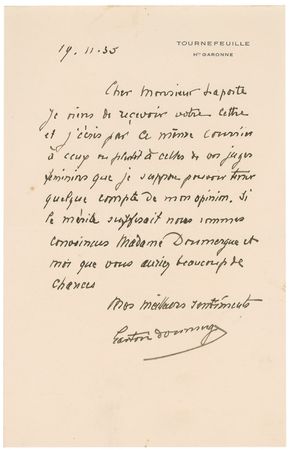 TOURNEFEUILLE
Hte GARONNE
19.11.35
Cher Monsieur Laporte
Je viens de recevoir votre lettre
et j'écris par ce même courrier
à ceux ou plutôt à celles de vos juges
féminins que je suppose pouvoir tenir
quelque compte de mon opinion. Si
le mérite suffisait nous sommes
convaincus Madame Doumergue et
moi que vous auriez beaucoup de
chances
Mes meilleurs sentiments
Gaston Doumergue